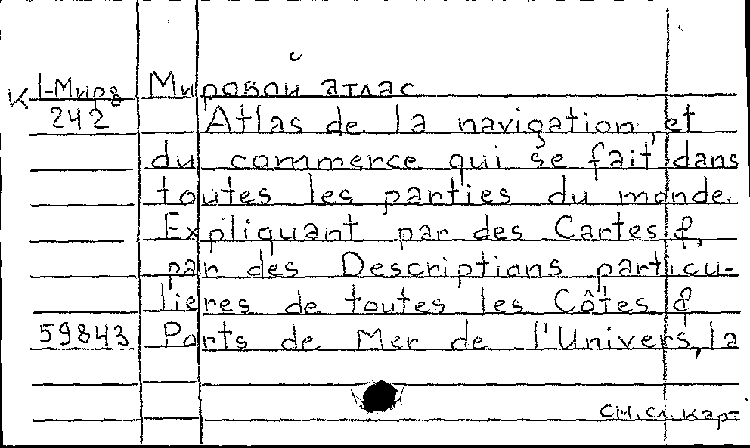 К 1-Мирв Мировой атлас
242 Atlas de la navigation, et
du commerce qui se fait dans
toutes les parties du monde.
Expliquant par des Cartes &,
par des Descriptions particu-
lieres de toutes les Côtes &
59843 Ports de Mer de l'Univers, la
см.сл.карт